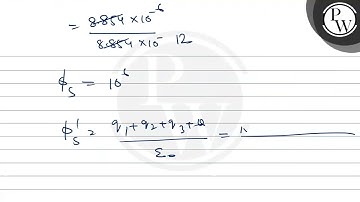 = 8.854 × 10^-6 / 8.854 × 10^- 12
ϕ_S = 10^6
ϕ'_S = q_1 + q_2 + q_3 + Q / ε_0 =